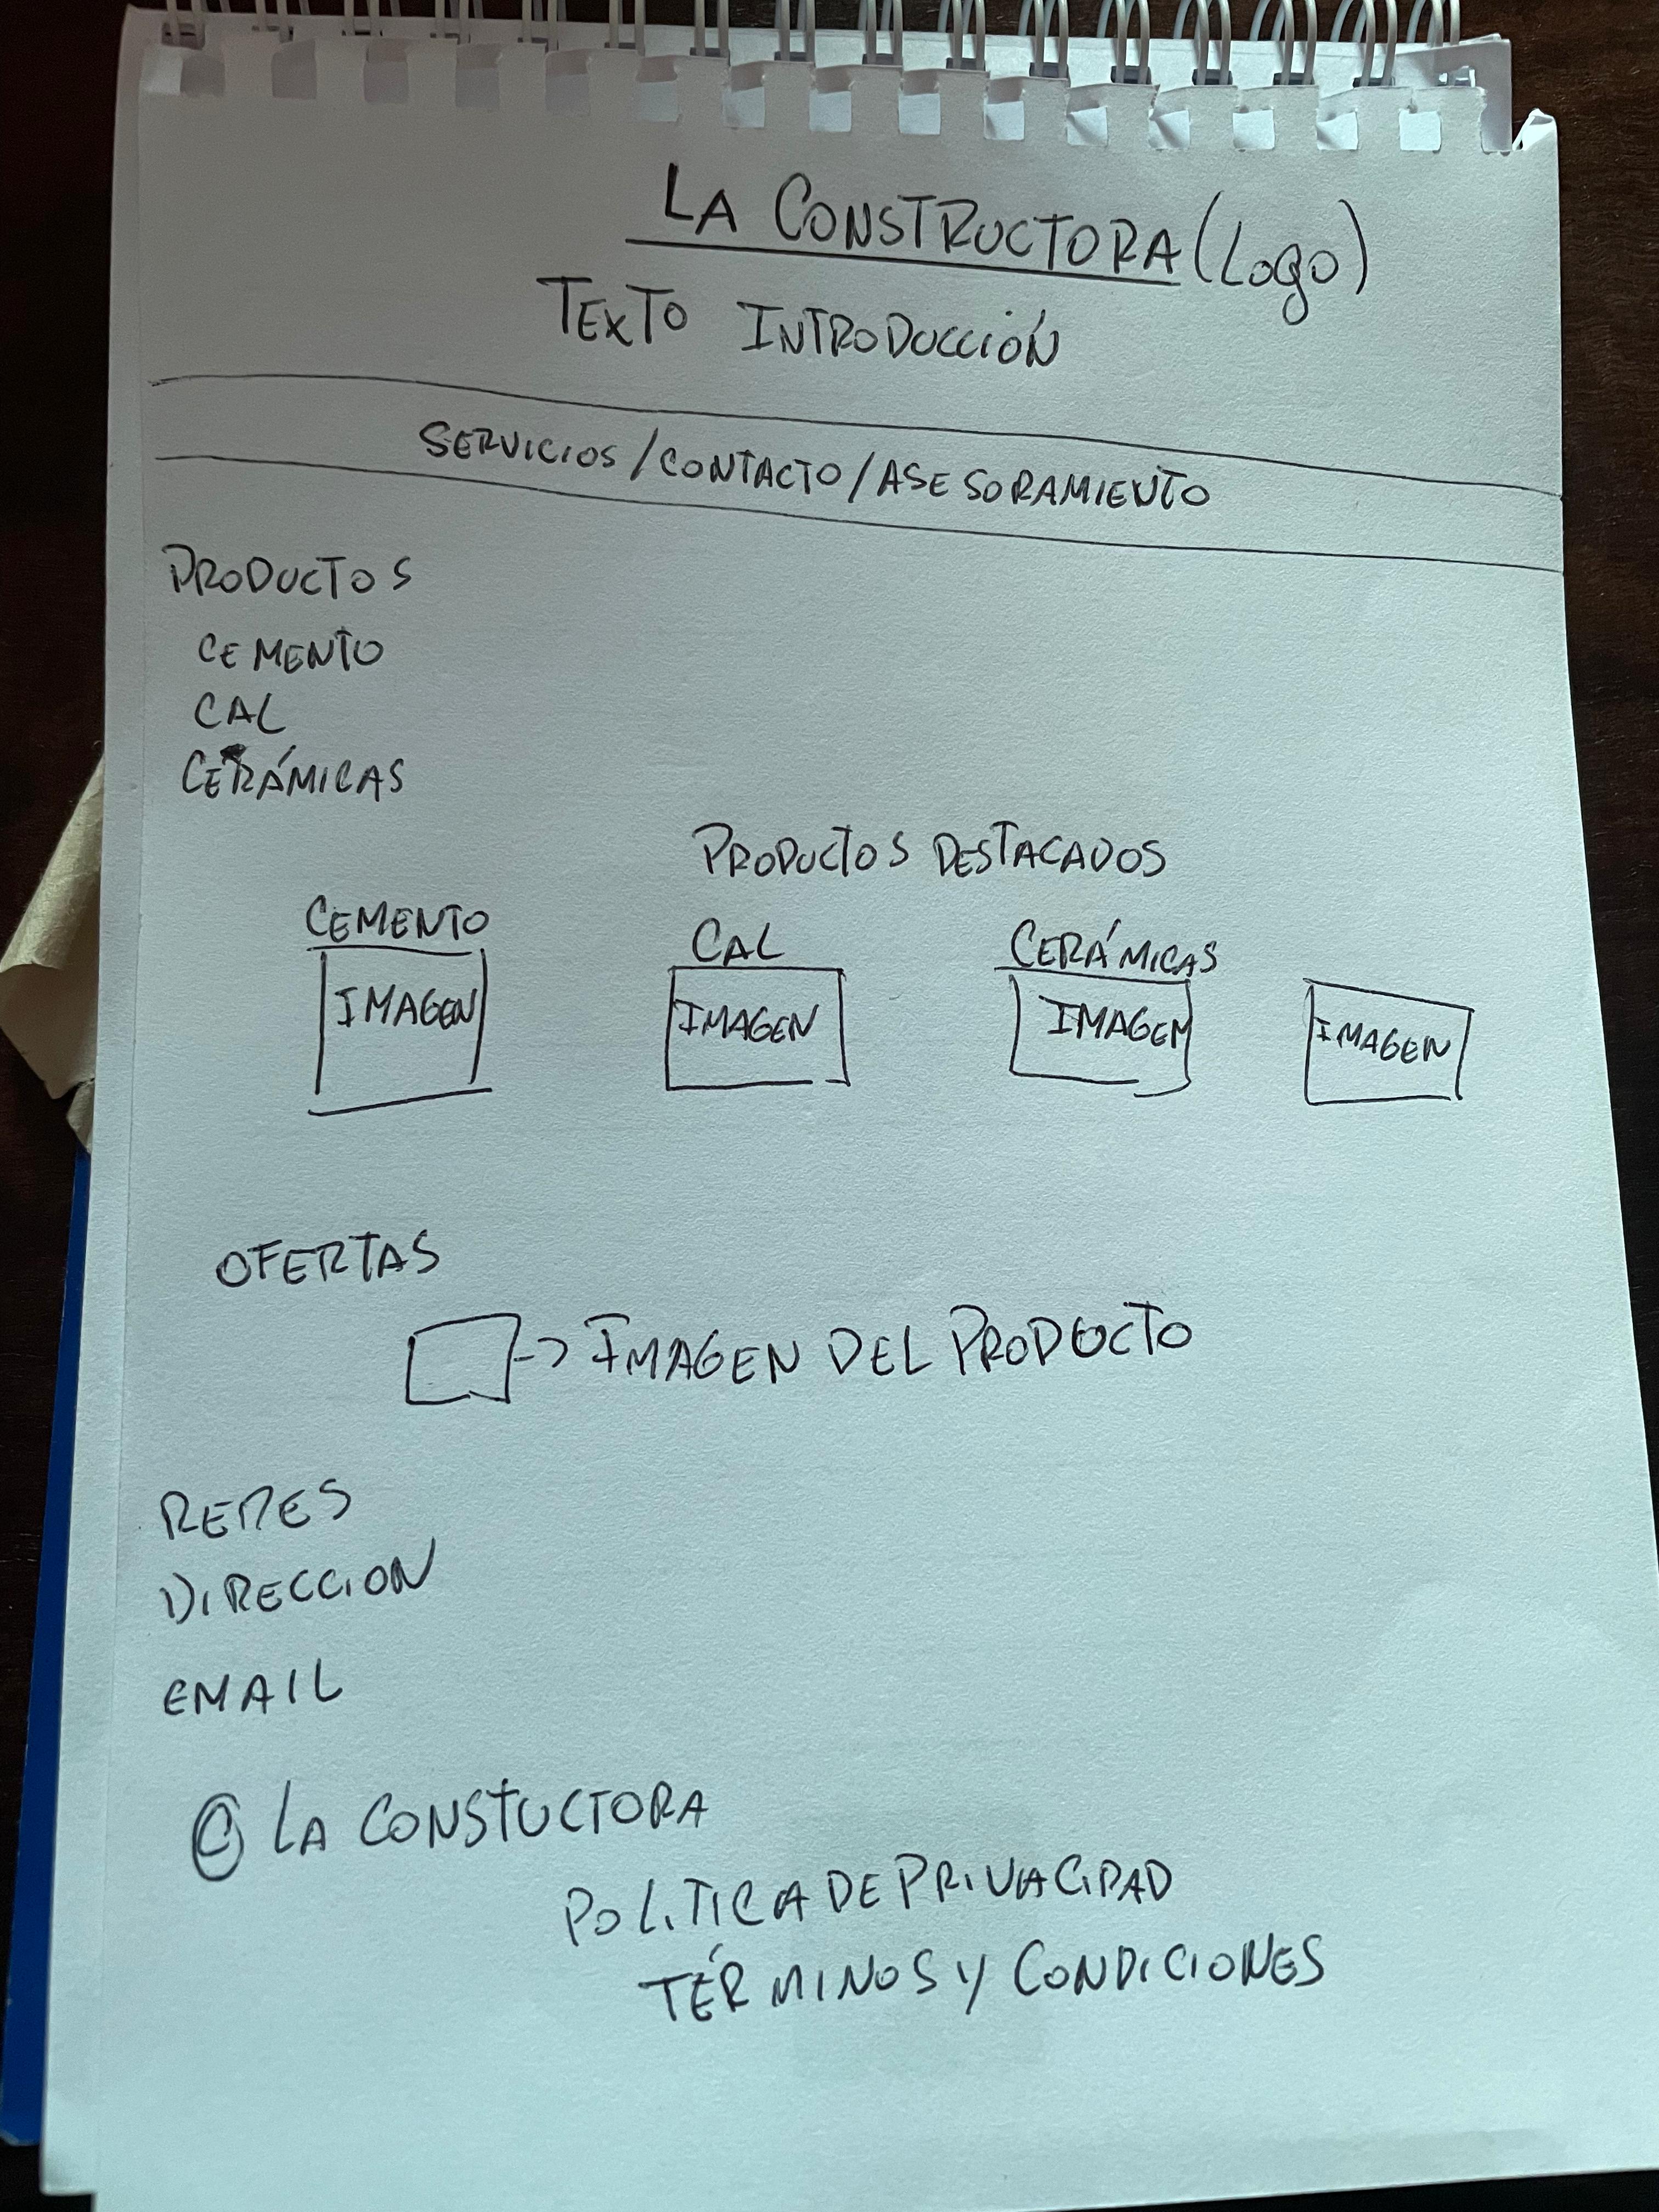 LA CONSTRUCTORA (LOGO)
TEXTO INTRODUCCIÓN
SERVICIOS/CONTACTO/ASESORAMIENTO
PRODUCTOS
CEMENTO
CAL
CERÁMICAS
PRODUCTOS DESTACADOS
CEMENTO
CAL
CERÁMICAS
IMAGEN
IMAGEN
IMAGEN
IMAGEN
OFERTAS
-> IMAGEN DEL PRODUCTO
REDES
DIRECCION
EMAIL
© LA CONSTUCTORA
POLITICA DE PRIVACIDAD
TÉRMINOS Y CONDICIONES